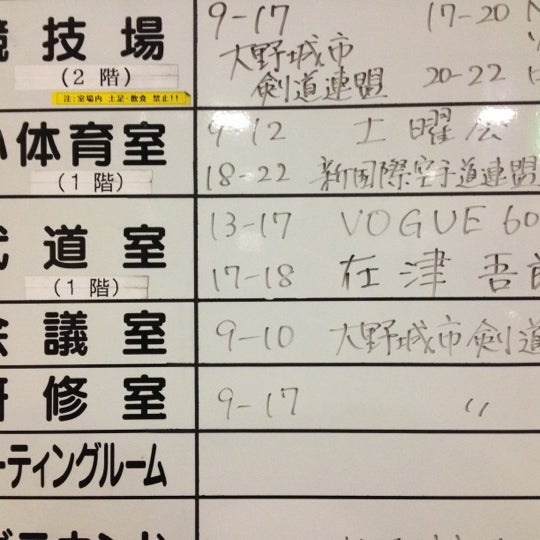 技場
9-17
17-20
大野城市
(2階)
剣道連盟
20-22
注:室場内 土足・飲食 禁止!!
体育室
9-12
土曜
(1階)
18-22
新国際空手道連盟
道室
13-17
VOGUE 60
(1階)
17-18
在津 吾
議室
9-10
大野城市剣道
修室
9-17
〃
ーティングルーム